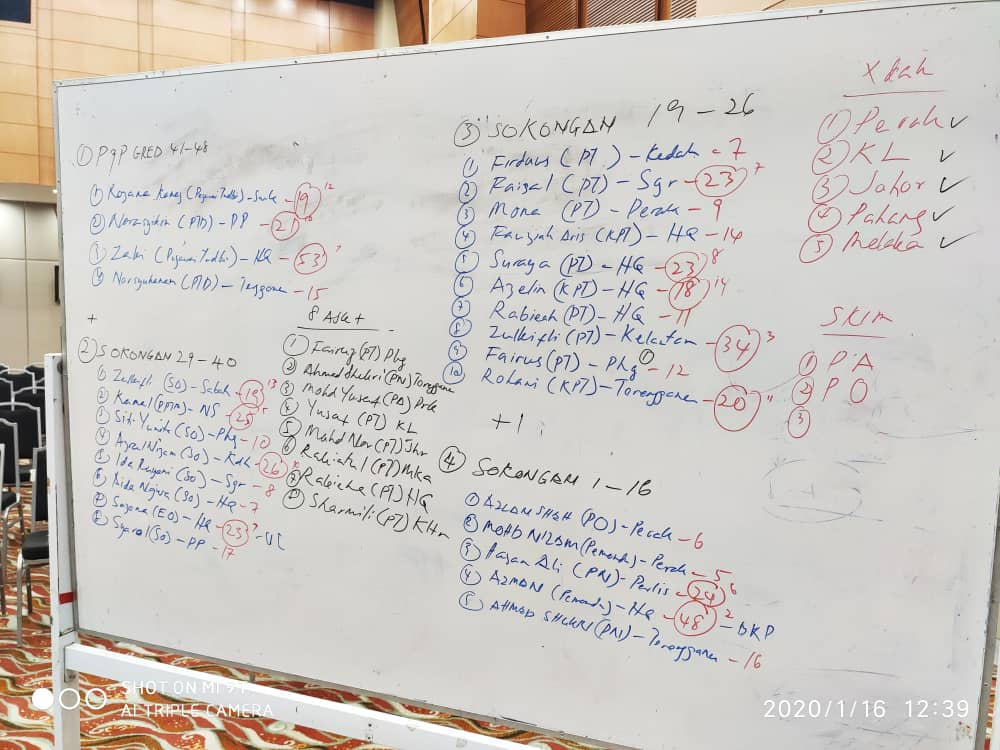 ① PgP GRED 41-48
① Rozana (Pegawai Tadbir) - Swk - 19 12
② Norasyikin (PTD) - PP - 21
③ Zaki (Pegawai Tadbir) - HQ - 53
④ Norsyuhanan (PTD) - Tengganu - 15
+
② SOKONGAN 29-40
① Zulkifli (SO) - Sabah - 19 13
② Kamal (PPTM) - NS - 25
③ Siti Yunita (SO) - Phg - 10
④ Azral Nizam (SO) - Kdh - 26
⑤ Ida (SO) - Sgr - 8
⑥ Aida Najwa (SO) - HQ - 7
⑦ (EO) - HQ - 23
⑧ Syarol (SO) - PP - 17
8 Aset
① Fairuz (PT) Phg
② Ahmad Shukri (PN) Terengganu
③ Mohd Yusof (PO) Prk
④ Yusof (PT) KL
⑤ Mohd Nor (PT) Jhr
⑥ Rabiatul (PT) Mka
⑦ Rabieha (PT) HQ
⑧ Sharmili (PT) Kltn
③ SOKONGAN 19-26
① Firdaus (PT) - Kedah - 7
② Faizal (PT) - Sgr - 23 7
③ Mona (PT) - Perak - 9
④ Fauziah Aris (KPT) - HQ - 14
⑤ Suraya (PT) - HQ - 23 8
⑥ Azelin (KPT) - HQ - 18 14
⑦ Rabieah (PT) - HQ - 11
⑧ Zulkifli (PT) - Kelantan - 34 3
⑨ Fairus (PT) - Phg ① - 12
⑩ Rohani (KPT) - Terengganu - 20 11
+1
④ SOKONGAN 1-16
① AZLAN SHAH (PO) - Perak - 6
② MOHD NIZAM (Pemandu) - Perak - 5
③ Hasan Ali (PN) - Perlis - 24 6
④ AZMAN (Pemandu) - HQ - 48 2 - BKP
⑤ AHMAD SHUKRI (PN) - Terengganu - 16
X kah
① Perak ✓
② KL ✓
③ Johor ✓
④ Pahang ✓
⑤ Melaka ✓
SKIM
① PA
② PO
③
SHOT ON MI 9T
AI TRIPLE CAMERA
2020/1/16 12:39